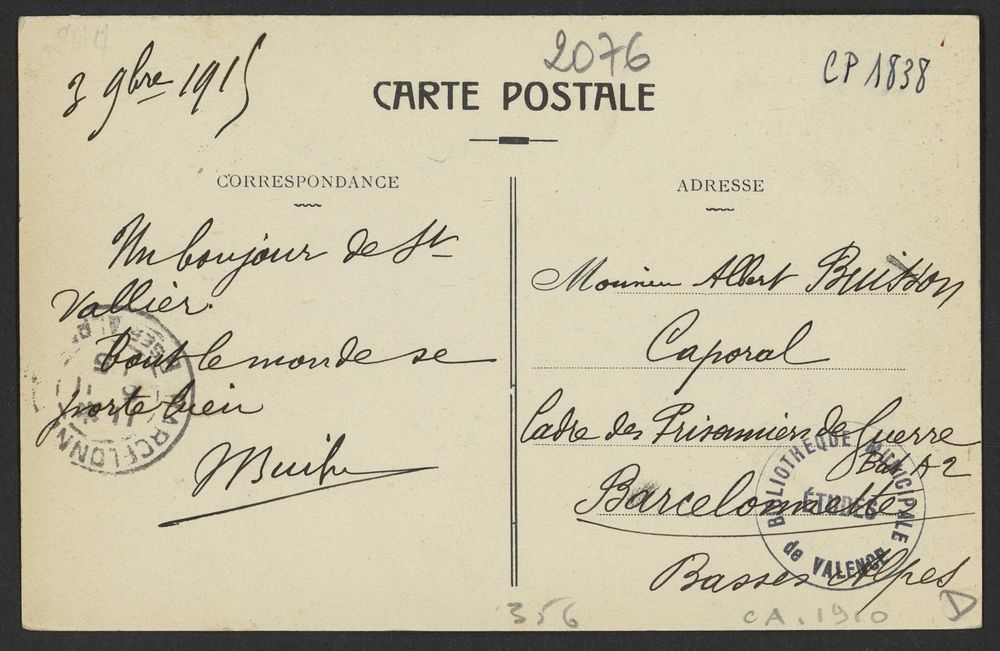 3 9bre 1915
2076
CP 1838
CARTE POSTALE
CORRESPONDANCE
Un bonjour de St
Vallier.
tout le monde se
porte bien
ADRESSE
Monsieur Albert Buisson
Caporal
Cadre des Prisonniers de Guerre
Bat A2
Barcelonnette
Basses Alpes
BARCELONN
BIBLIOTHÈQUE MUNICIPALE
ÉTUDES
de VALENCE
356
CA. 1910